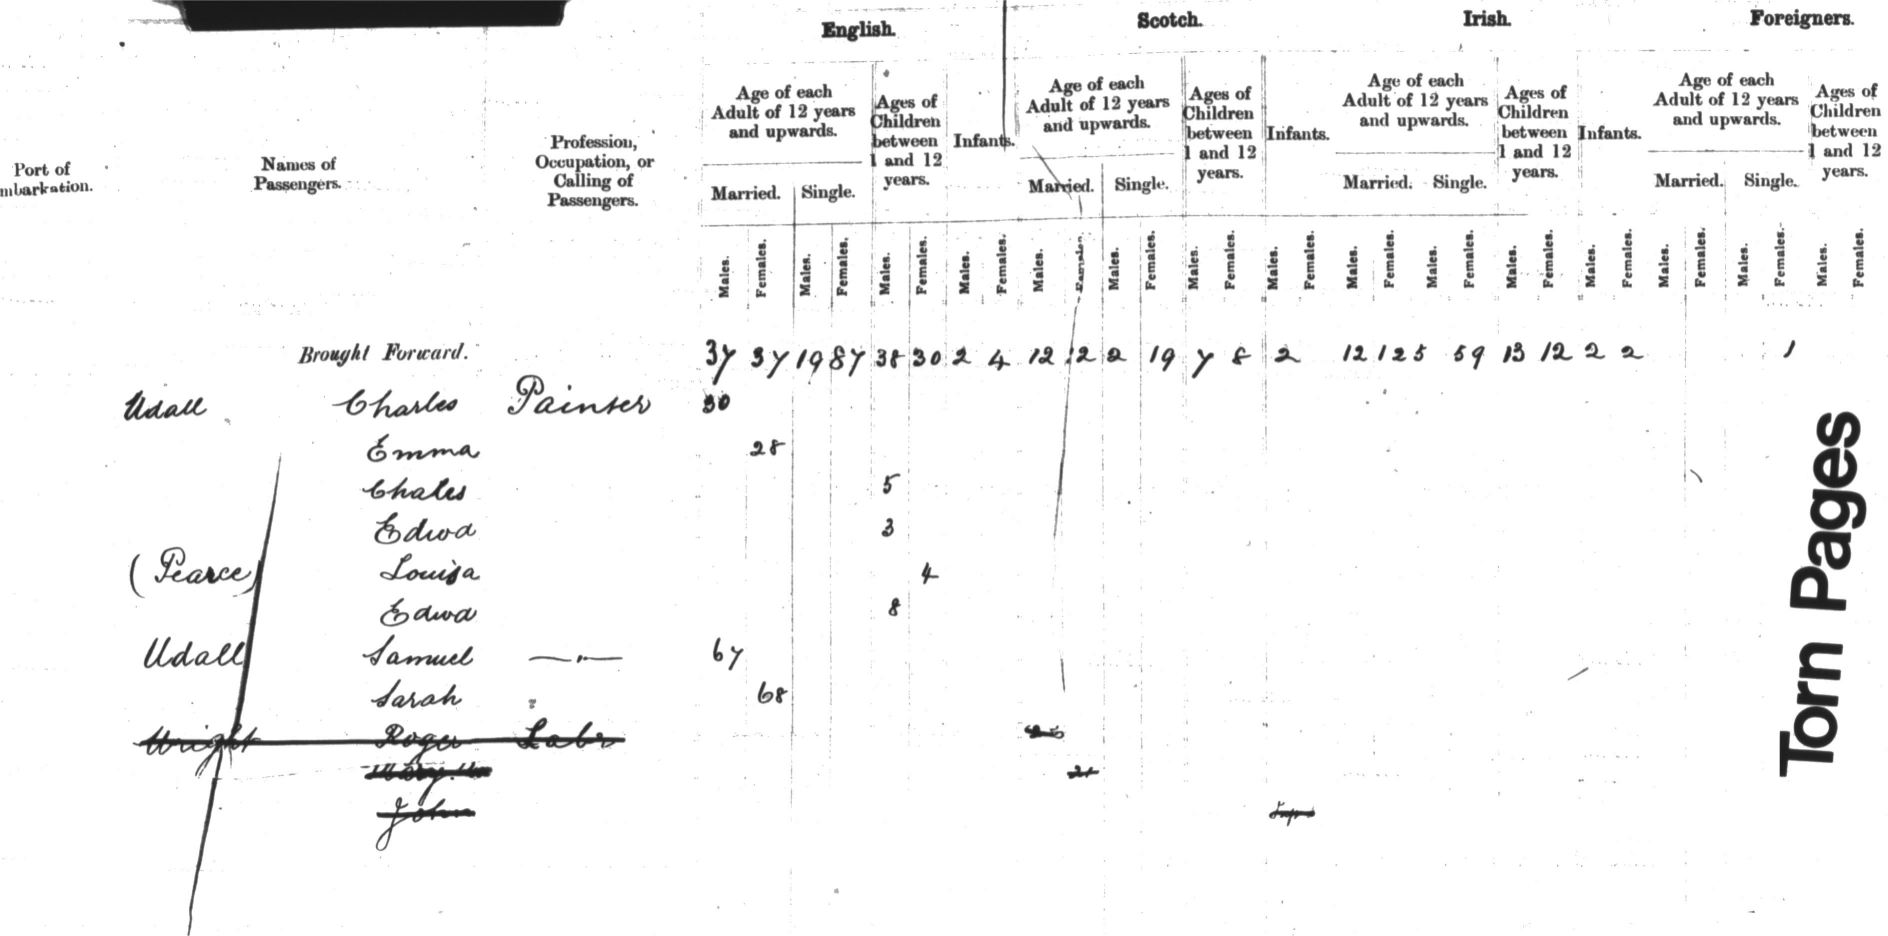 English. Scotch. Irish. Foreigners.
Age of each Adult of 12 years and upwards. Ages of Children between 1 and 12 years. Infants. Age of each Adult of 12 years and upwards. Ages of Children between 1 and 12 years. Infants. Age of each Adult of 12 years and upwards. Ages of Children between 1 and 12 years. Infants. Age of each Adult of 12 years and upwards. Ages of Children between 1 and 12 years.
Port of mbarkation. Names of Passengers. Profession, Occupation, or Calling of Passengers.
Married. Single. Married. Single. Married. Single. Married. Single.
Males. Females. Males. Females. Males. Females. Males. Females. Males. Females. Males. Females. Males. Females. Males. Females. Males. Females. Males. Females. Males. Females. Males. Females. Males. Females. Males. Females. Males. Females.
Brought Forward. 37 37 19 87 38 30 2 4 12 12 2 19 7 8 2 12 12 5 59 13 12 2 2 1
Udall Charles Painter 30
Emma 28
Chales 5
Edwd 3
(Pearce) Louisa 4
Edwd 8
Udall Samuel —〃— 67
Sarah 68
Wright Roger Labr
John
Torn Pages